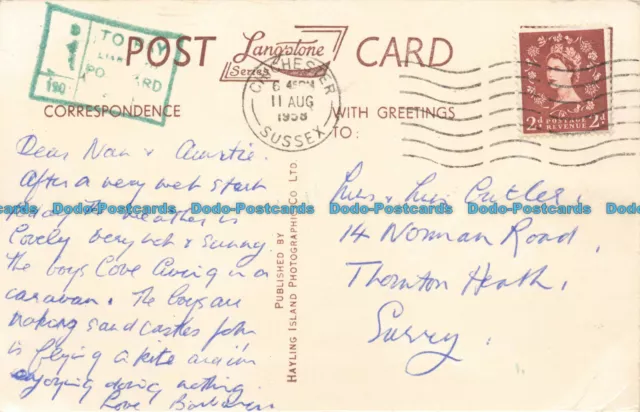 TO PAY
PO CARD
POST CARD
Langstone
Series
CHICHESTER
6 45PM
11 AUG
1958
SUSSEX
2d POSTAGE REVENUE 2d
CORRESPONDENCE
WITH GREETINGS
TO:
Dear Nan & Auntie.
After a very wet start
the weather is
lovely very hot & sunny.
The boys love living in a
caravan. The boys are
making sand castles John
is flying a kite and i'm
enjoying doing nothing.
Love Barbara
PUBLISHED BY
HAYLING ISLAND PHOTOGRAPHIC CO LTD.
Mrs & Miss Cutler,
14 Norman Road,
Thornton Heath,
Surrey.
Dodo-Postcards Dodo-Postcards Dodo-Postcards Dodo-Postcards Dodo-Postcards